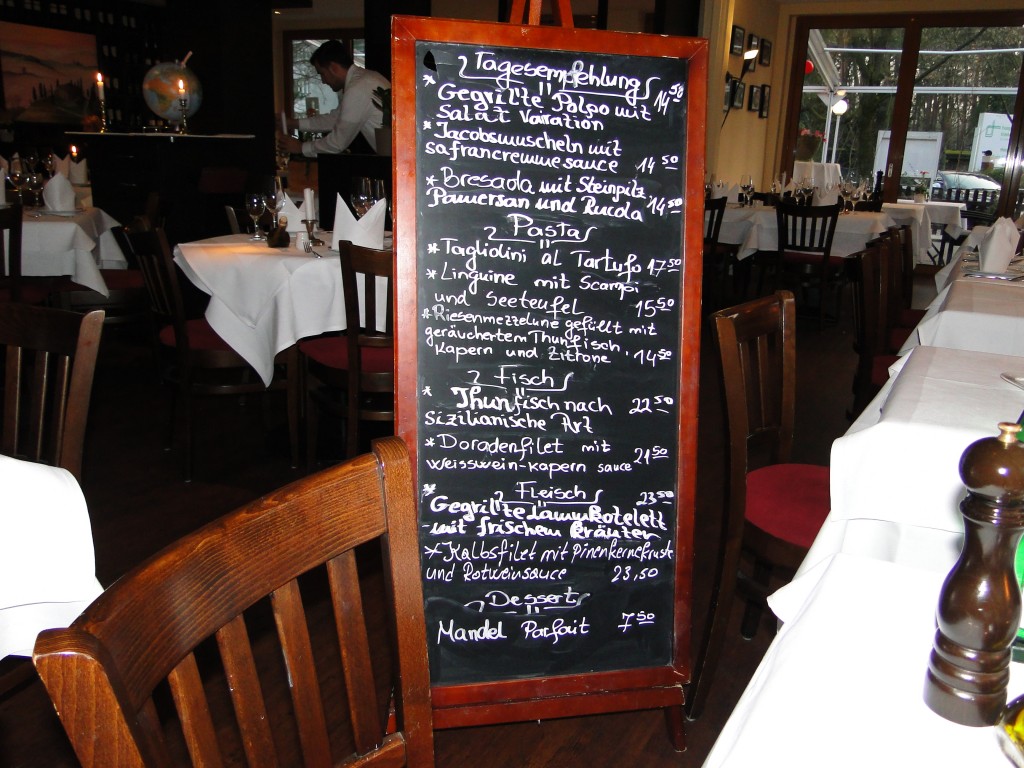 Tagesempfehlung
* Gegrillte Polpo mit 14 50
Salat Variation
* Jacobsmuscheln mit
safrancremmesauce 14 50
* Bresada mit Steinpilz
Pamersan und Rucola 14 50
Pasta
* Tagliolini al Tartufo 17 50
* Linguine mit Scampi
und Seeteufel 15 50
* Riesenmezzelune gefüllt mit
geräuchertem Thunfisch
Kapern und Zittone 14 50
Fisch
* Thunfisch nach 22 50
sizilianische Art
* Doradenfilet mit
weisswein-kapern sauce 21 50
Fleisch 23 50
* Gegrillte Lammkotelett
mit frischem kräuter
* Kalbsfilet mit Pinenkernekruste
und Rotweinsauce 23,50
Dessert
Mandel Parfait 7 50